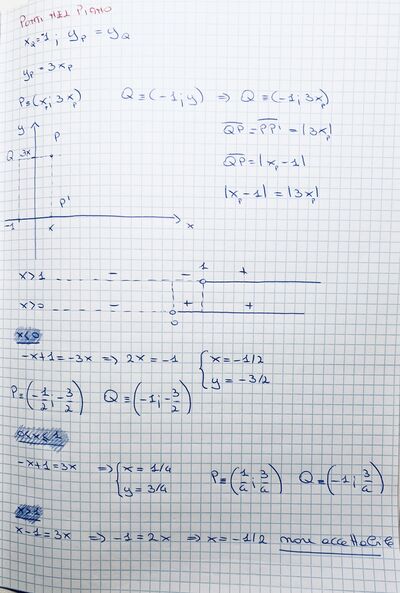 PUNTI NEL PIANO
x_Q = -1 ; y_P = y_Q
y_P = 3x_P
P≡(x_P; 3x_P) Q≡(-1; y) ⇒ Q≡(-1; 3x_P)
y
Q 3x P
P'
-1 x x
QP = PP' = |3x_P|
QP = |x_P - 1|
|x_P - 1| = |3x_P|
x>1 - - 1 +
x>0 - + +
0
x<0
-x+1 = -3x ⇒ 2x = -1 { x = -1/2
y = -3/2
P≡(-1/2; -3/2) Q≡(-1; -3/2)
0<x≤1
-x+1 = 3x ⇒ { x = 1/4
y = 3/4
P≡(1/4; 3/4) Q≡(-1; 3/4)
x>1
x-1 = 3x ⇒ -1 = 2x ⇒ x = -1/2 non accettabile